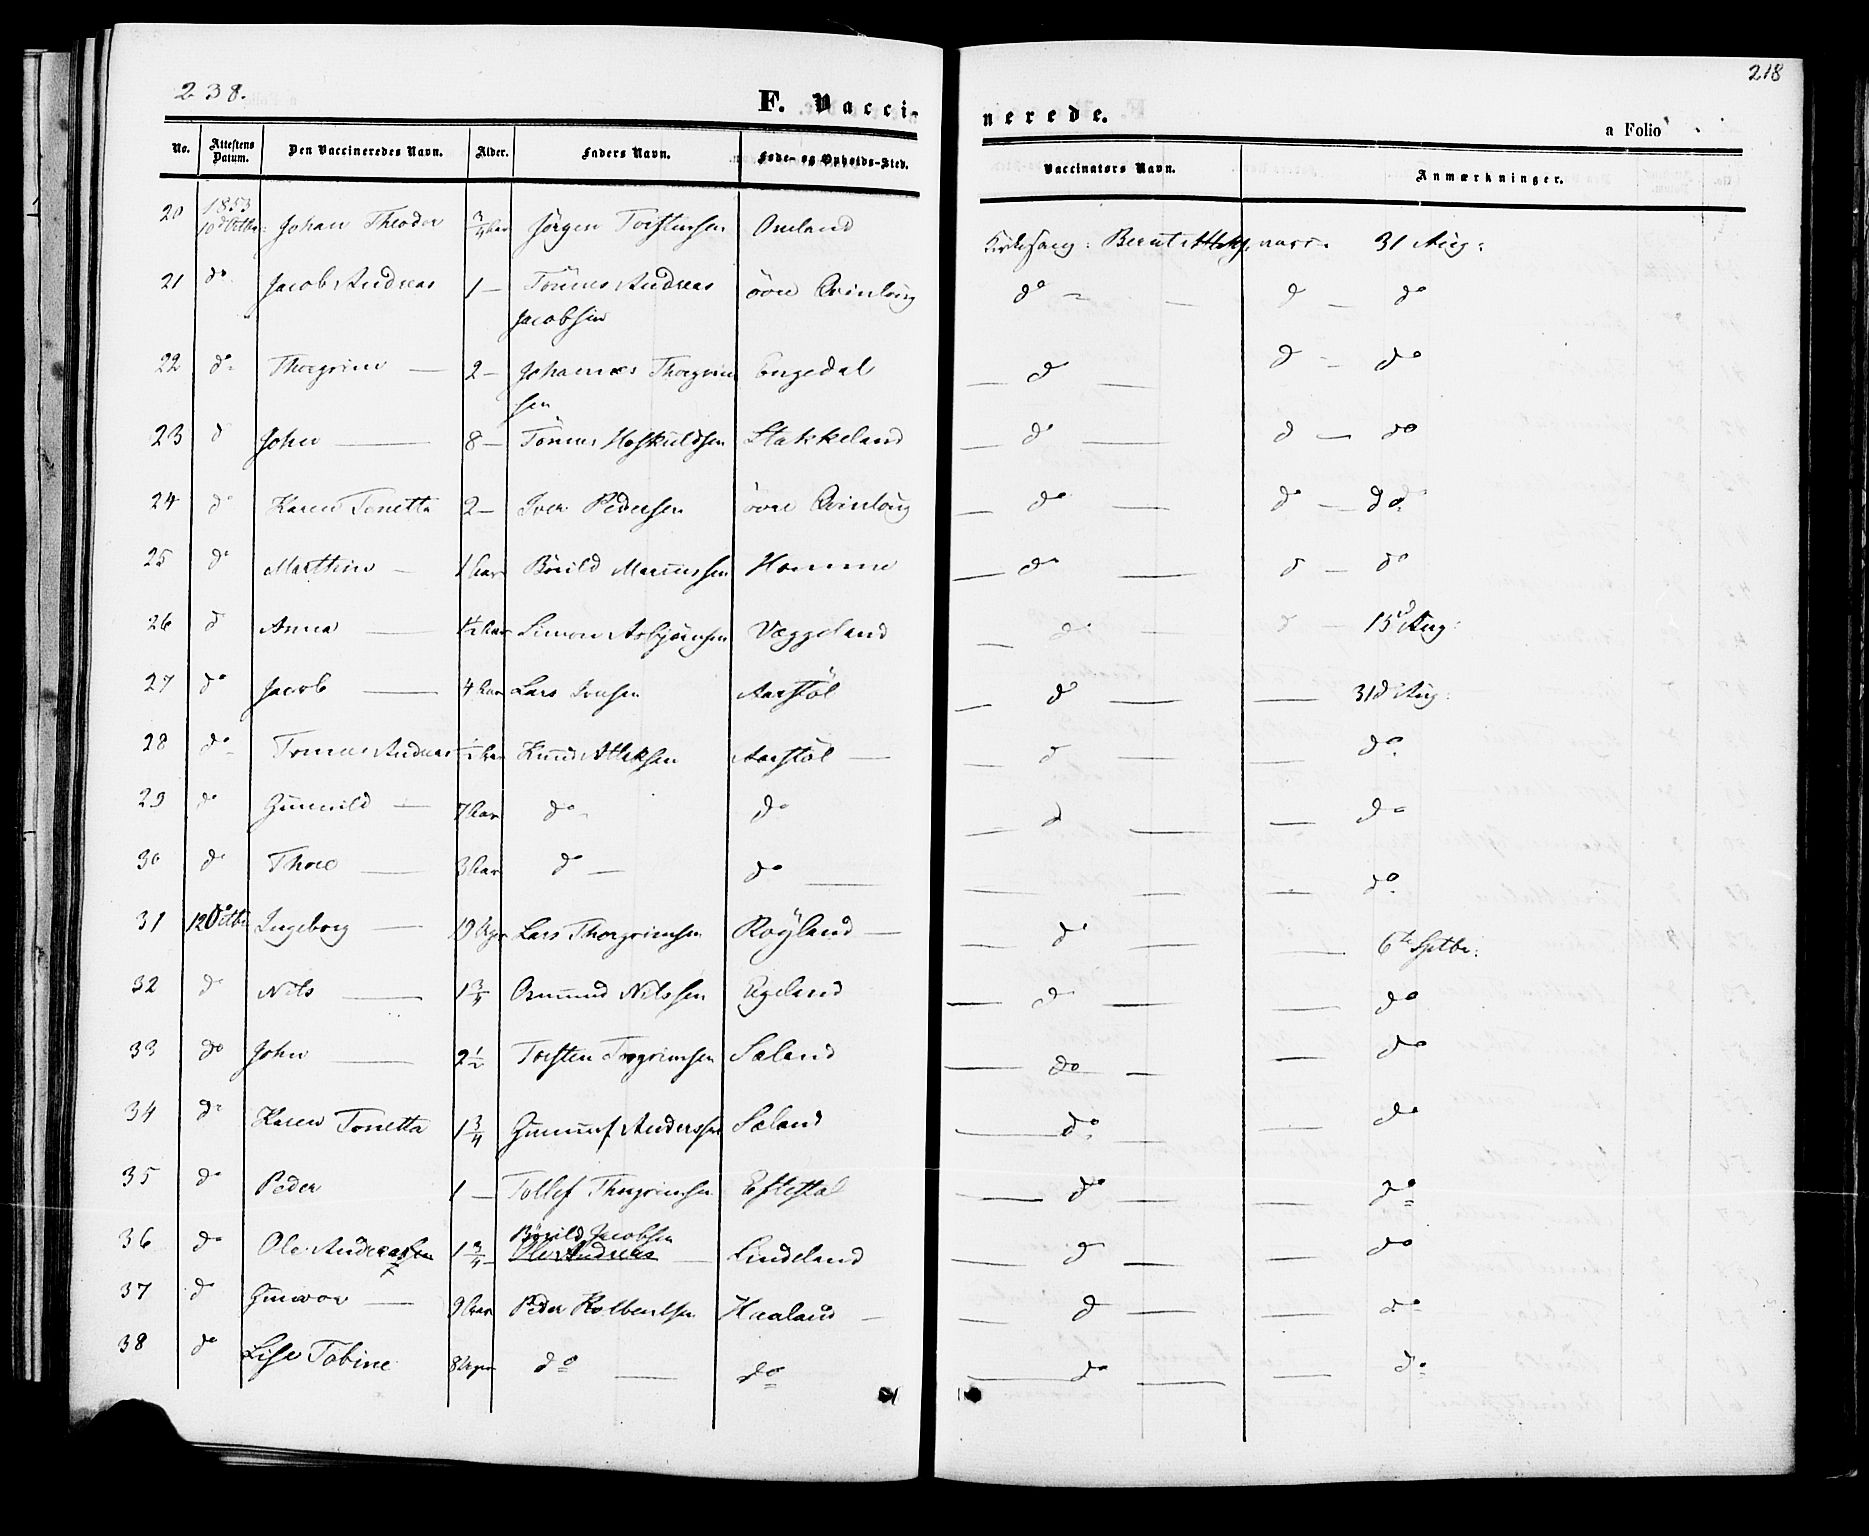 238.
218
F. Vaccinerede.
a Folio
No. Attestens Datum. Den Vaccineredes Navn. Alder. Faders Navn. Føde- og Opholds-Sted. Vaccinators Navn. Anmærkninger.
1853
20 10d Octbr: Johan Theodor 3/4 Aar Jörgen Torstensen Omland Kirkesang: Bernt 31 Aug:
21 do Jacob Andreas 1 — Tönnes Andreas Jacobsen övre Qvinlaug do — d — do
22 do Thorgrim — 2 — Johannes Thorgrimsen Engedal — d — d — do
23 d John — 8 — Tönnes Hoskuldsen Stakkeland — do — d — do
24 do Karen Tonetta 2 — Iver Pedersen övre Qvinlaug — do — do — do
25 do Marthin — 1 Aar Börild Marcussen Homme — do — d — do
26 d Anna — 1/2 Aar Simon Asbjörnsen Væggeland — do — d — 15d Aug:
27 do Jacob — 4 Aar Lars Iversen Aarstöl — d — — 31d Aug:
28 do Tönnes Andreas 1/2 Aar Knud Atlaksen Aarstöl — — d — — do
29 do Gunvild — 7 Aar do do — d — — do
30 do Thore — 3 Aar do — do — — — — do
31 12 Octbr Ingeborg — 19 Uger Lars Thorgrimsen Röyland — — do — — 6te Sptbr:
32 do Nils — 1 3/4 Omund Nilssen Egeland — do — — do
33 do John — 2 1/2 Torsten Torgrimsen Sæland — do — — do
34 do Karen Tonetta 1 3/4 Gunnuf Anderssen Sæland — do — — do
35 do Peder 1 — Tollef Thorgrimsen Eftestöl — do — — do
36 do Ole Andreassen 1 3/4 Börild Jacobsen Ole Andreas — Lindeland — d — — do
37 do Gunvor — 9 Aar Peder Kolbentsen Haaland — — d — — do
38 do Lise Tobine 8 Uger do — do — do — — do